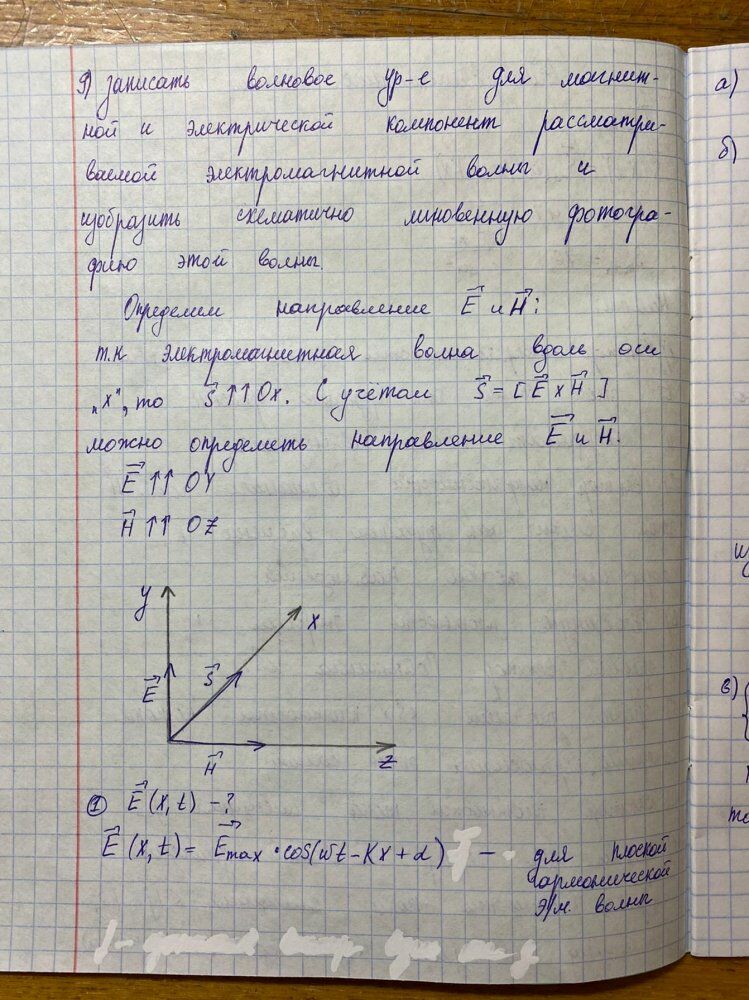 9) записать волновое ур-е для магнит-
ной и электрической компонент рассматри-
ваемой электромагнитной волны и
изобразить схематично мгновенную фотогра-
фию этой волны.
Определим направление E⃗ и H⃗:
т.к электромагнитная волна вдоль оси
„x", то S⃗ ↑↑ Ox. С учётом S⃗ = [E⃗ x H⃗]
можно определить направление E⃗ и H⃗.
E⃗ ↑↑ OY
H⃗ ↑↑ OZ
y
x
E⃗
S⃗
H⃗
z
① E⃗(x,t) -?
E⃗(x,t) = E⃗max · cos(ωt - Kx + α) — для плоской
гармонической
э/м. волны
а)
б)
в)